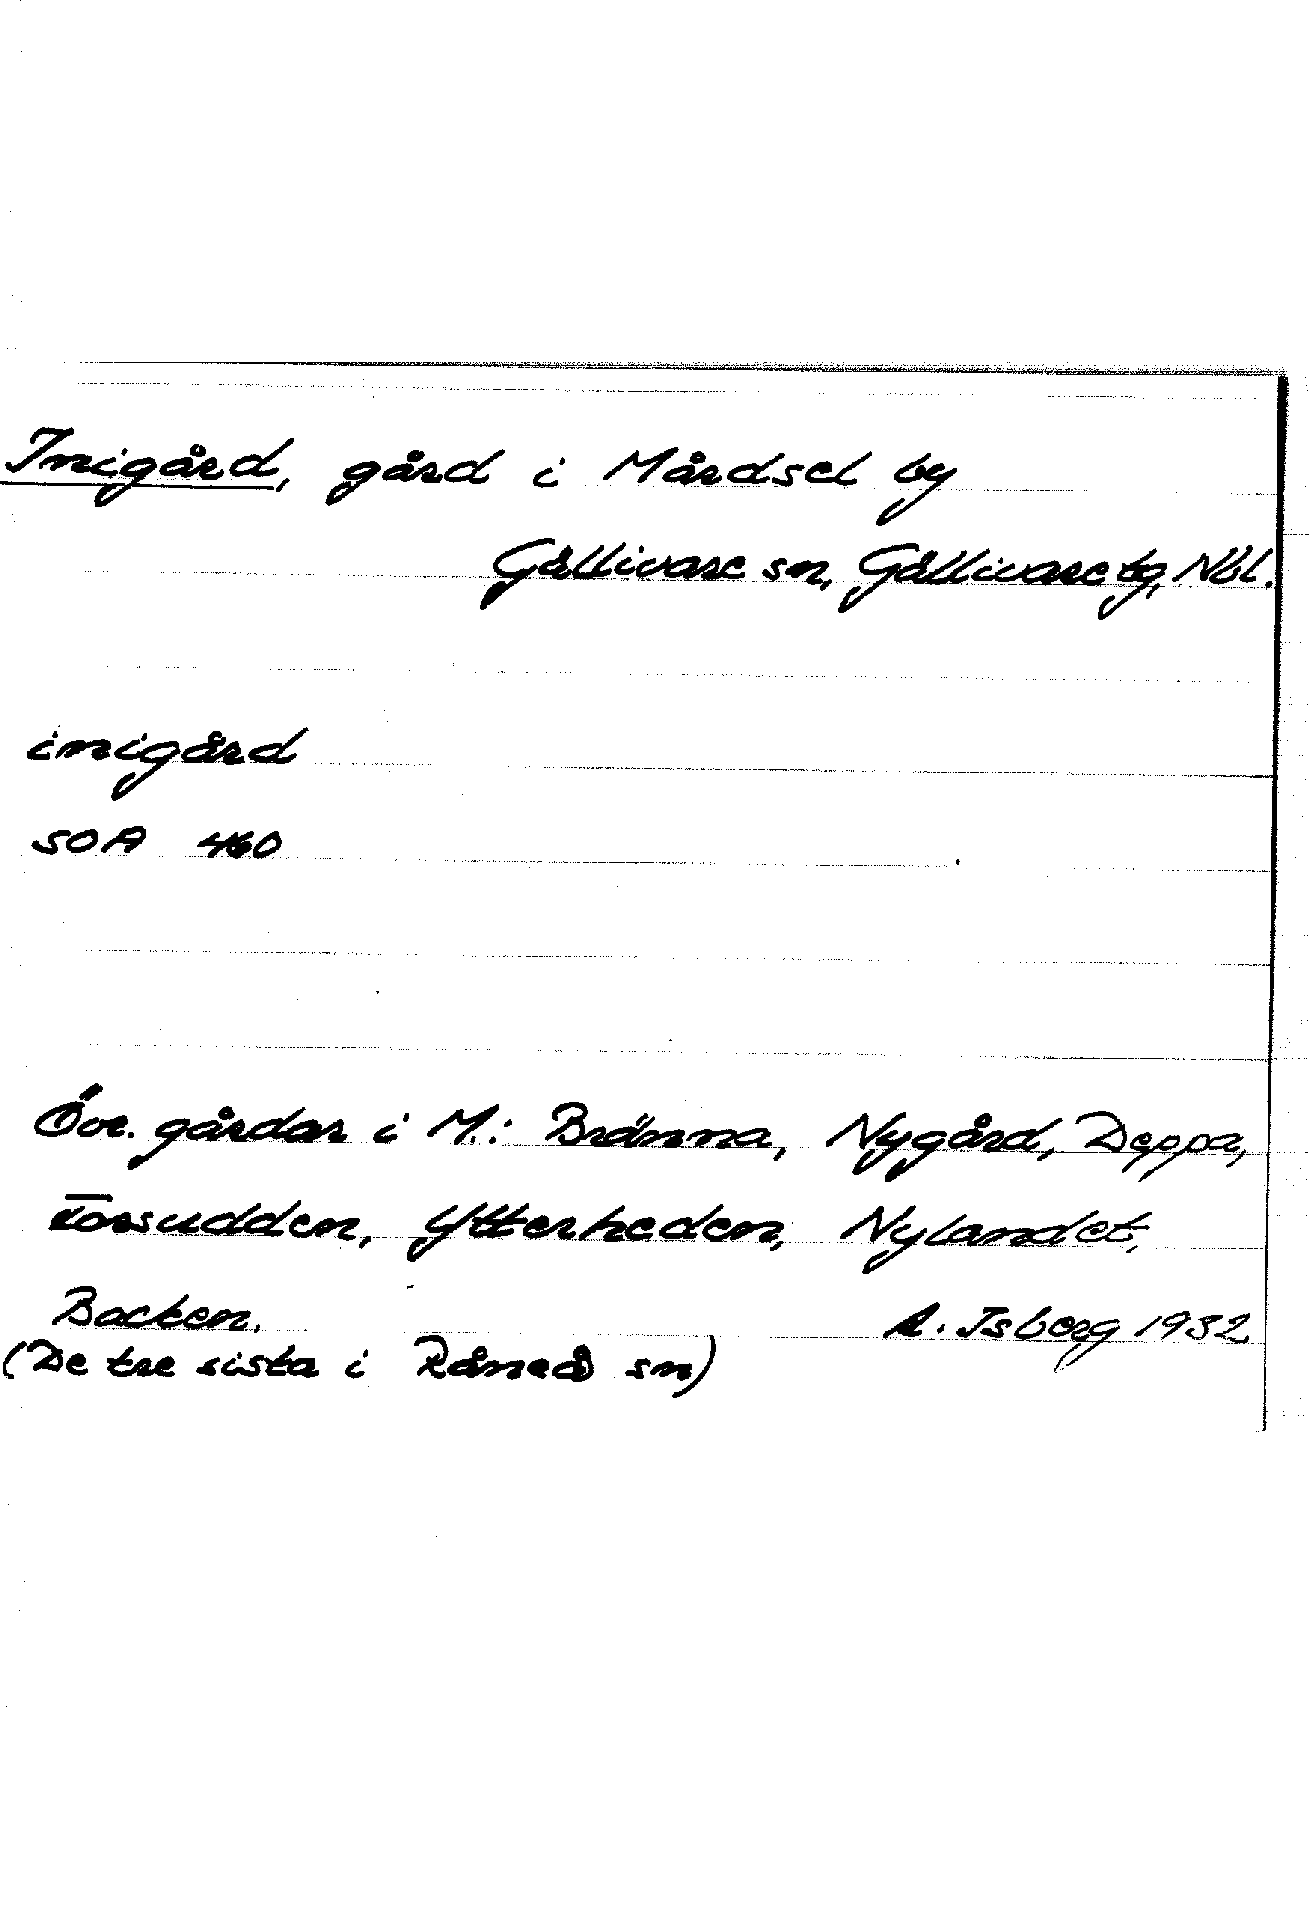 Inigård, gård i Mårdsel by
Gällivare sn, Gällivare tg, Nbl.
inigård
SOA 460
Övr. gårdar i M.: Bränna, Nygård, Deppa,
Forsudden, Ytterheden, Nylandet,
Backen.
A. Isberg 1932
(De tre sista i Råneå sn)